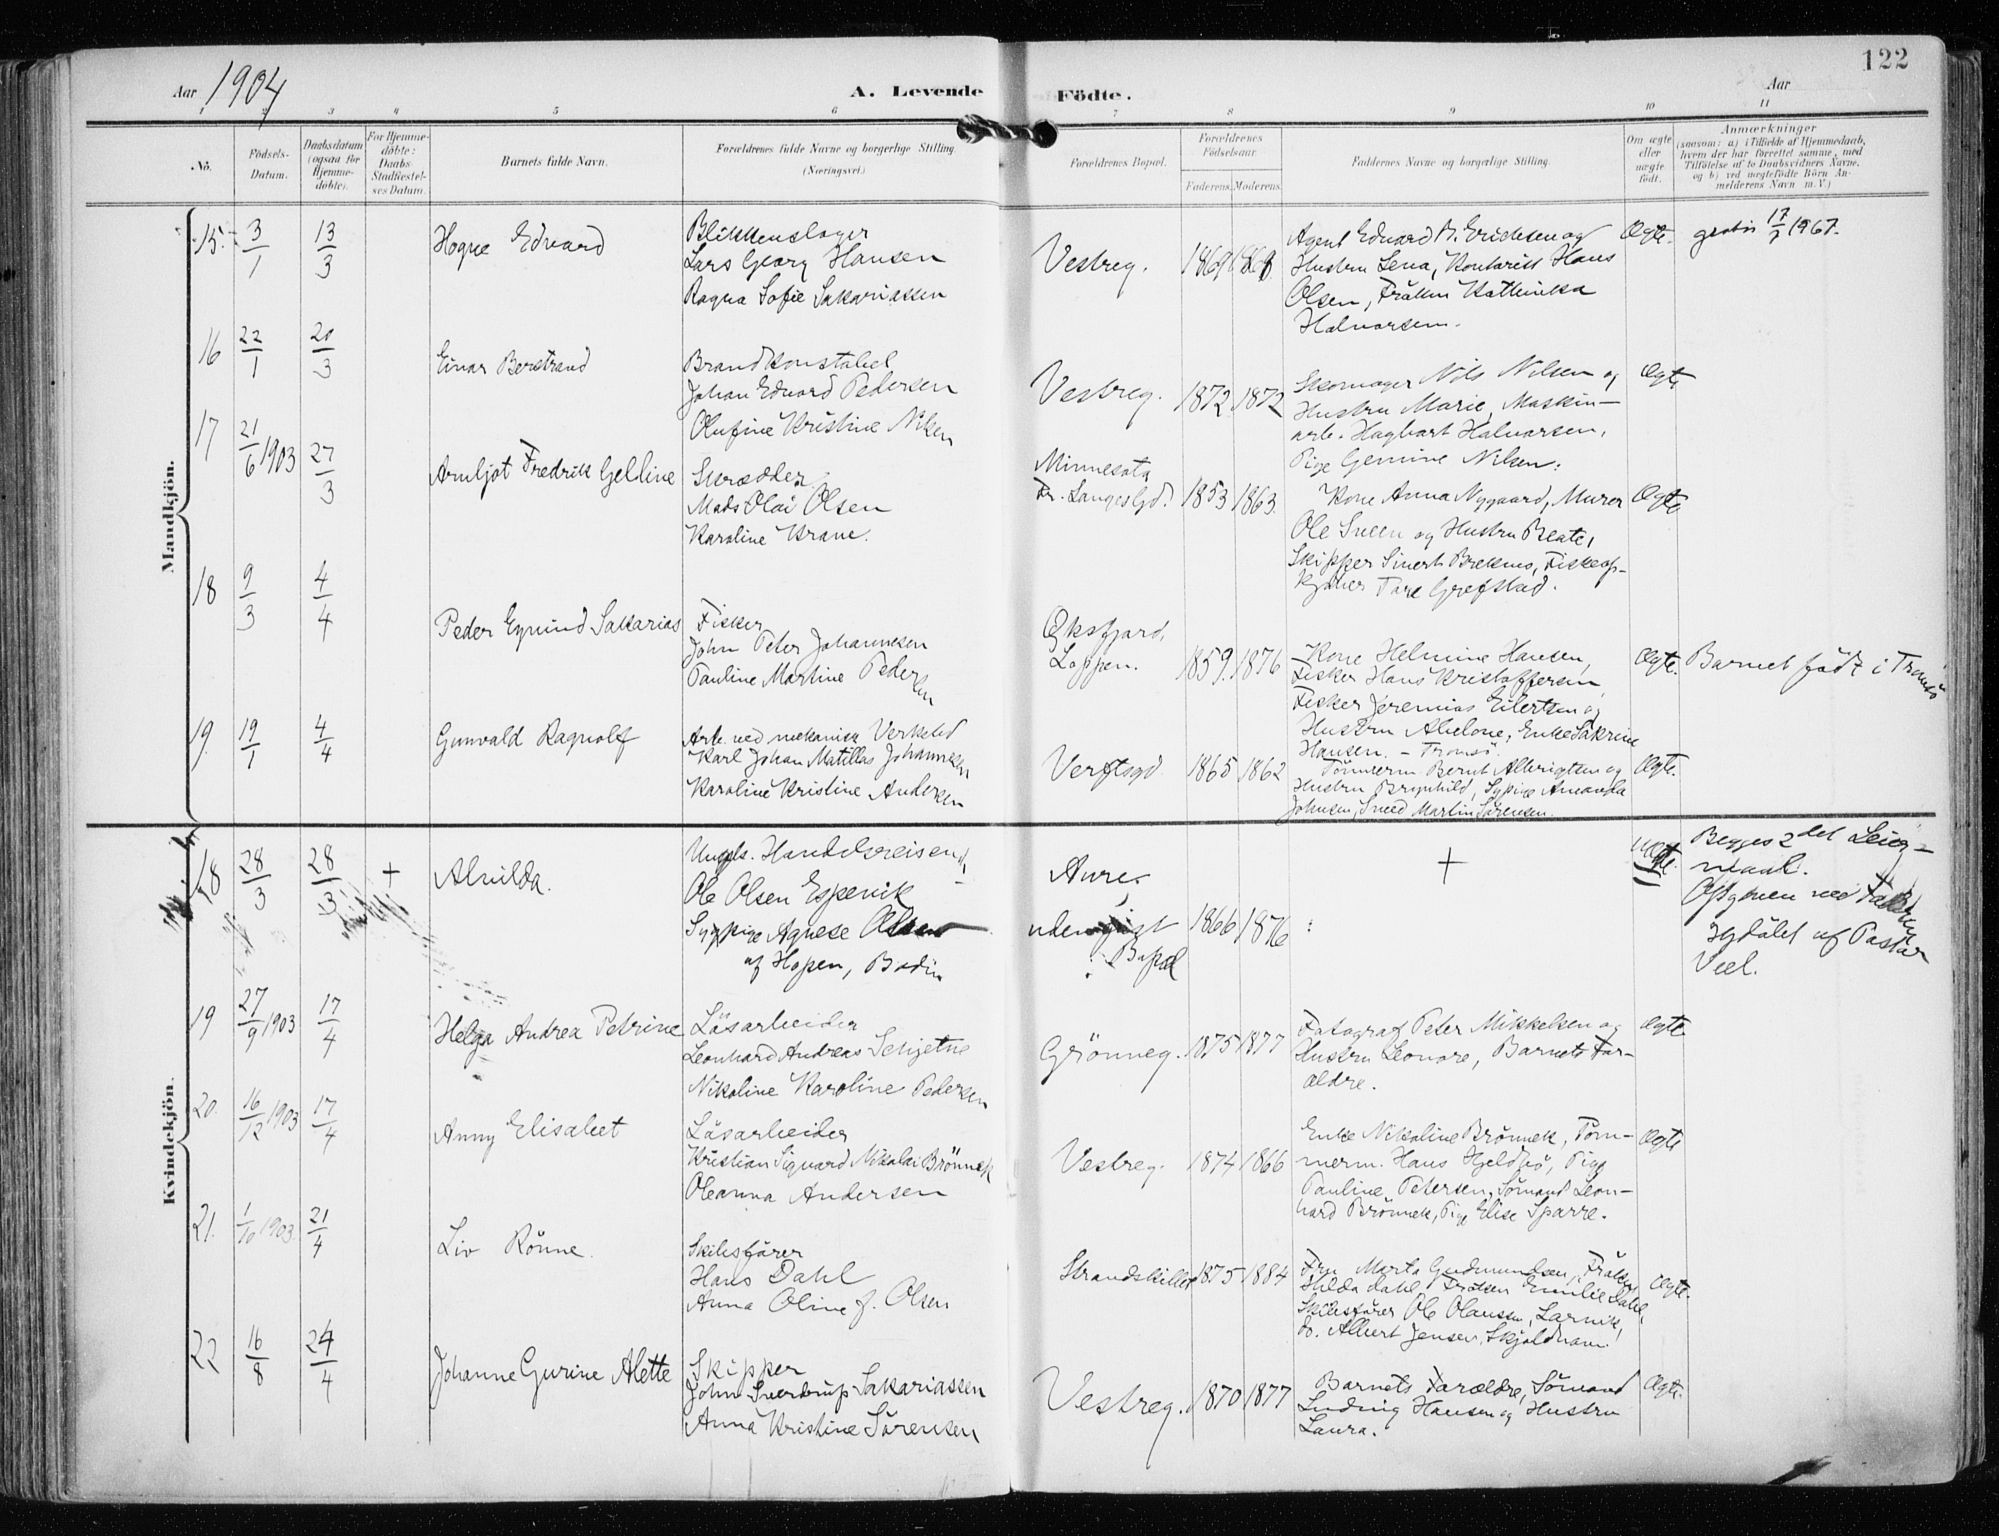 122
Aar 1904
A. Levende Födte.
Aar
1 2 3 4 5 6 7 8 9 10 11
No.
Födsels-Datum.
Daabsdatum (ogsaa for Hjemme-döbte).
For Hjemme-döbte: Daabs Stadfæstel-ses Datum.
Barnets fulde Navn.
Forældrenes fulde Navne og borgerlige Stilling. (Næringsvei.)
Forældrenes Bopæl.
Forældrenes Födselsaar.
Faderens. Moderens.
Faddernes Navne og borgerlige Stilling.
Om ægte eller uægte födt.
Anmærkninger
(saasom: a) i Tilfælde af Hjemmedaab,
hvem der har forrettet samme, med
Tilföielse af to Daabsvidners Navne,
og b) ved uægtefödte Börn An-
melderens Navn m. V.)
Mandkjön.
15. 3/1 13/3
Hogne Edvard
Blikkenslager
Lars Georg Hansen
Ragna Sofie Sakariassen
Vestreg. 1869 1868
Agent Edvard A. Erichsen og
Hustru Lena, Kontorist Hans
Olsen, Fröken Kathinka
Halvorsen.
Ægte.
17/7 1967.
16 22/1 20/3
Einar Berstrand
Brandkonstabel
Johan Edvard Pedersen
Olufine Kristine Nilsen
Vestreg. 1872 1872
Skomager Nils Nilsen og
Hustru Marie, Maskin-
arb. Hagbart Halvorsen,
Pige Gemine Nilsen.
Ægte
17 21/6 1903 27/3
Arnljot Fredrik Geldine
Skrædder
Mads Olai Olsen
Karoline Krane.
Minnesota
Fr. Langesgd. 1853 1863
Kone Anna Nygaard, Murer
Ole Sveen og Hustru Beate,
Skipper Sivert Breknes, Fiskeop-
kjöber Tore Grefstad.
Ægte
18 9/3 4/4
Peder Eyvind Sakarias
Fisker
John Peter Johannesen
Pauline Martine Pedersen
Öksfjord,
Loppen. 1859 1876
Kone Helmine Hansen,
Fisker Hans Kristoffersen
Fisker Jeremias Eilertsen og
Hustru Abelone, Enke Sakrine
Hansen, - Tromsö.
Ægte.
Barnet född i Tromsö
19. 19/1 4/4
Gunvald Ragnolf
Arb. ved mekanisk Verksted
Karl Johan Matillas Johannesen
Karoline Kristine Andersen
Verftsgd. 1865 1862
Tömmerm. Bernt Albrigtsen og
Hustru Brynhild, Sypige Amanda
Johnsen, Smed Martin Sörensen.
Ægte.
Kvindekjön.
18 28/3 28/3 +
Alvilda.
Ungk. Handelsreisende
Ole Olsen Espenik
Sypige Agnese Olsen
af Hopen, Bodin
Aure.
1866 1876
Bopæl
+
uægte.
Begges 2det Leier-
maal.
af Pastor
19 27/9 1903 17/4
Helga Andrea Petrine
Lösarbeider
Leonhard Andreas Schjetne
Nikoline Karoline Pedersen
Grönneg. 1875 1877
Fotograf Peter Mikkelsen og
Hustru Leonore, Barnets For-
ældre.
Ægte
20. 16/12 1903 17/4
Anny Elisabet
Lösarbeider
Kristian Sigvard Nikolai Brönnek
Oleanna Andersen
Vestreg. 1874 1866
Enke Nikoline Brönnek, Töm-
merm. Hans Hjeldsö, Pige
Pauline Petersen, Sömand Leon-
hard Brönnek, Pige Elise Sparre.
Ægte
21. 1/10 1903 21/4
Liv Rönne.
Skibsförer
Hans Dahl
Anna Oline f. Olsen
Strandskillet 1875 1884
Fru Marta Gudmundsen, Fröken
Hilda Dahl, Fröken Emilie Dahl,
Skibsförer Ole Olaussen, Larvik,
do. Albert Jensen, Skjoldhavn.
Ægte.
22 16/8 24/4
Johanne Gurine Alette
Skipper
John Sverdrup Sakariassen
Anna Kristine Sörensen
Vestreg. 1870 1877
Barnets Forældre, Sömand
Ludvig Hansen og Hustru
Laura.
Ægte.